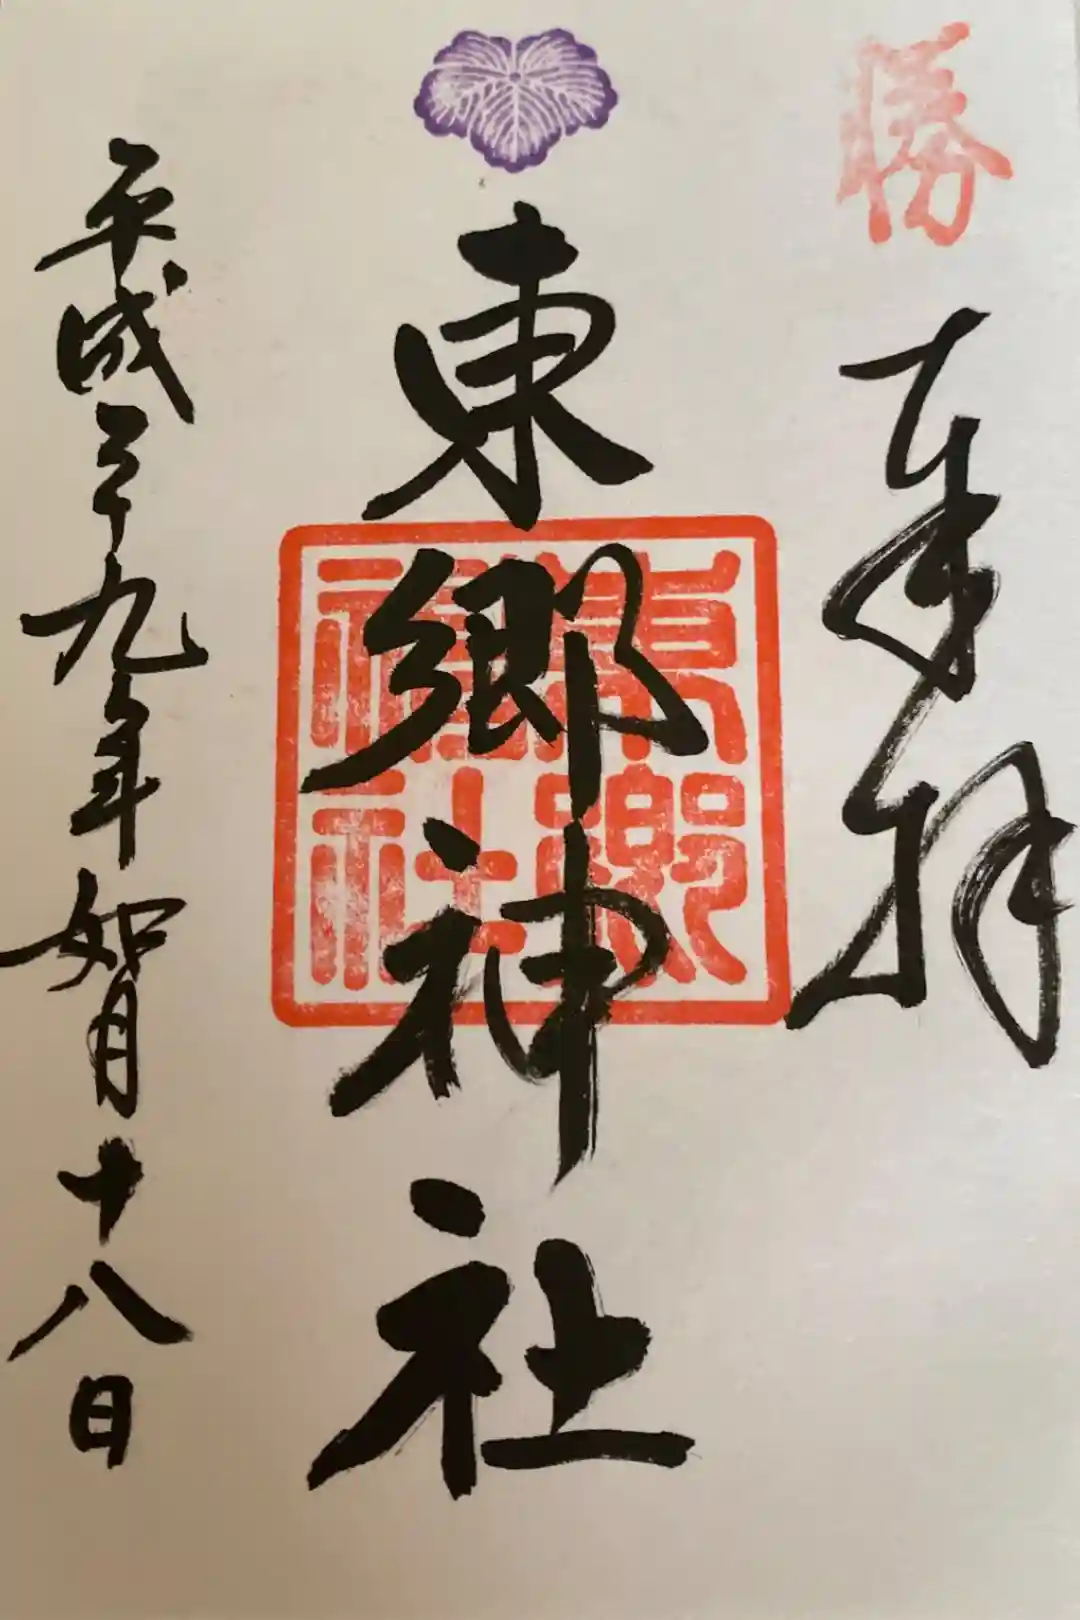 勝
奉拝
東郷神社
東郷神社
平成二十九年如月十八日